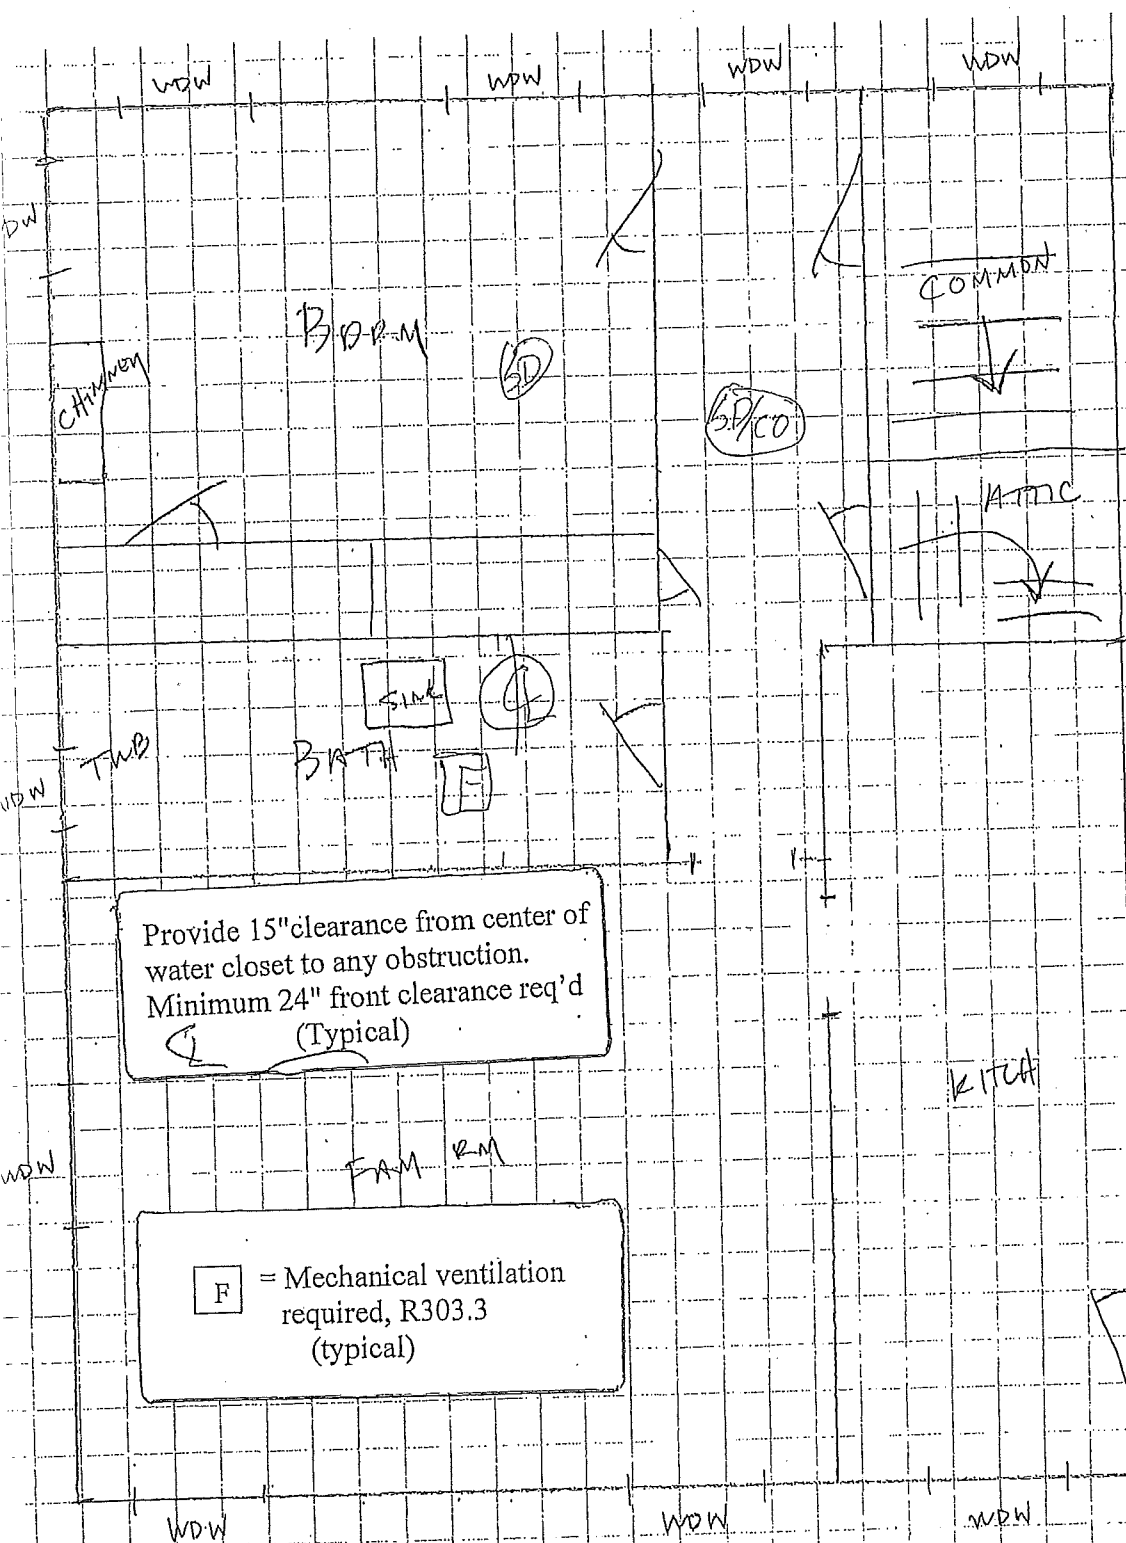 WDW
WDW
WDW
WDW
DW
COMMON
BDRM
SD
CHIMNEY
SD/CO
ATTIC
SINK
TUB
BATH
F
WDW
Provide 15"clearance from center of
water closet to any obstruction.
Minimum 24" front clearance req'd
(Typical)
KITCH
WDW
FAM RM
F
= Mechanical ventilation
required, R303.3
(typical)
WDW
WDW
WDW